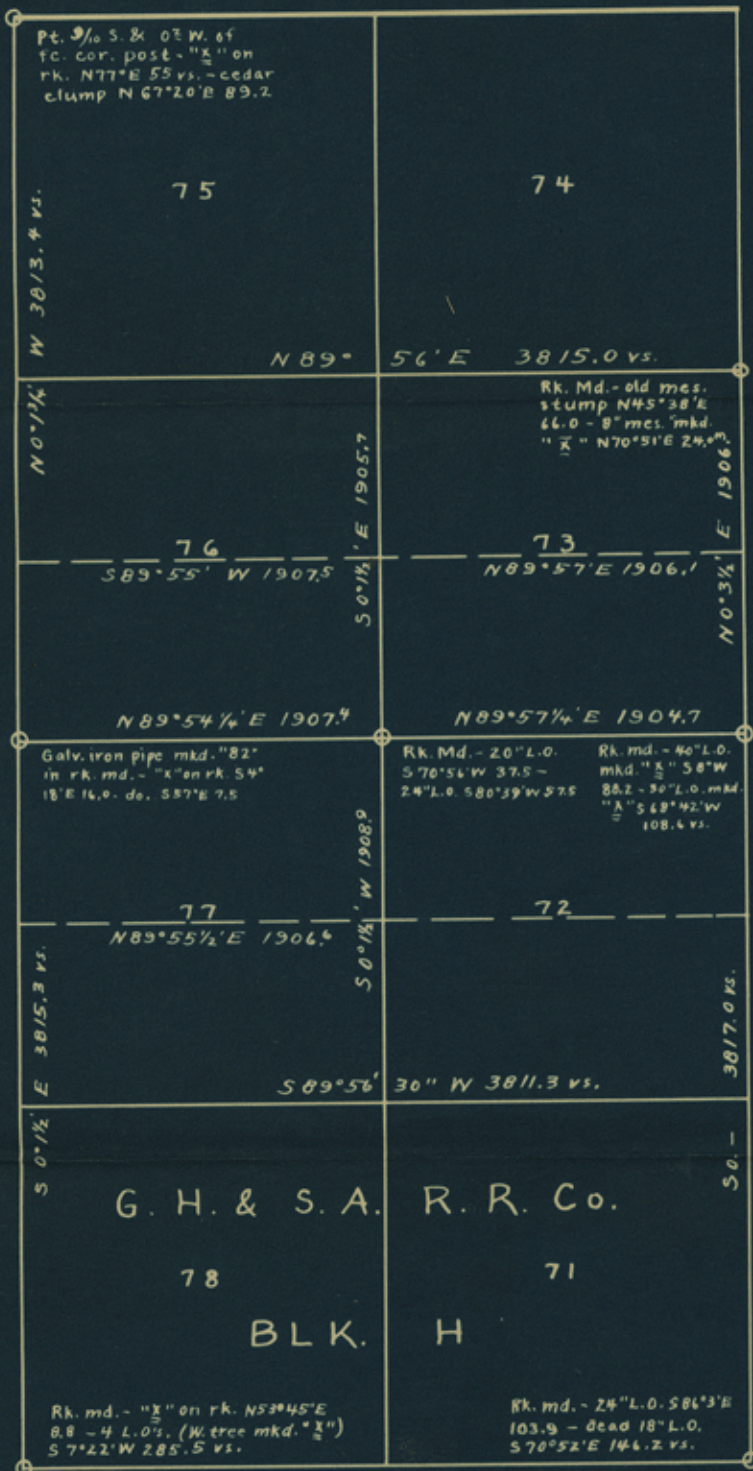 Pt. 9/10 S. & 0.2 W. of
fc. cor. post - "X" on
rk. N77°E 55 vs. - cedar
clump N 67°20'E 89.2
75
74
N0°1¾' W 3813.4 vs.
N 89° 56' E 3815.0 vs.
Rk. Md. - old mes.
stump N45°38'E
66.0 - 8" mes. mkd.
"X" N70°51'E 24.0
S0°1½' E 1905.7
N0°3½' E 1906.3
76
S89°55' W 1907.5
73
N89°57'E 1906.1
N89°54¼'E 1907.4
N89°57¼'E 1904.7
Galv. iron pipe mkd. "82"
in rk. md. - "x" on rk. S4°
18'E 16.0 - do. S57°E 7.5
Rk. Md. - 20" L.O.
S70°56'W 37.5 -
24" L.O. S80°39'W 57.5
Rk. md. - 40" L.O.
mkd. "X" S8°W
88.2 - 30" L.O. mkd.
"X" S68°42'W
108.6 vs.
S0°1½' W 1908.9
77
N89°55½'E 1906.6
72
S 0°1½' E 3815.3 vs.
S89°56' 30" W 3811.3 vs.
So. - 3817.0 vs.
G. H. & S. A. R. R. Co.
78
71
BLK. H
Rk. md. - "X" on rk. N53°45'E
8.8 - 4 L.O's. (W. tree mkd. "X")
S 7°22'W 285.5 vs.
Rk. md. - 24" L.O. S86°3'E
103.9 - dead 18" L.O.
S70°52'E 146.2 vs.